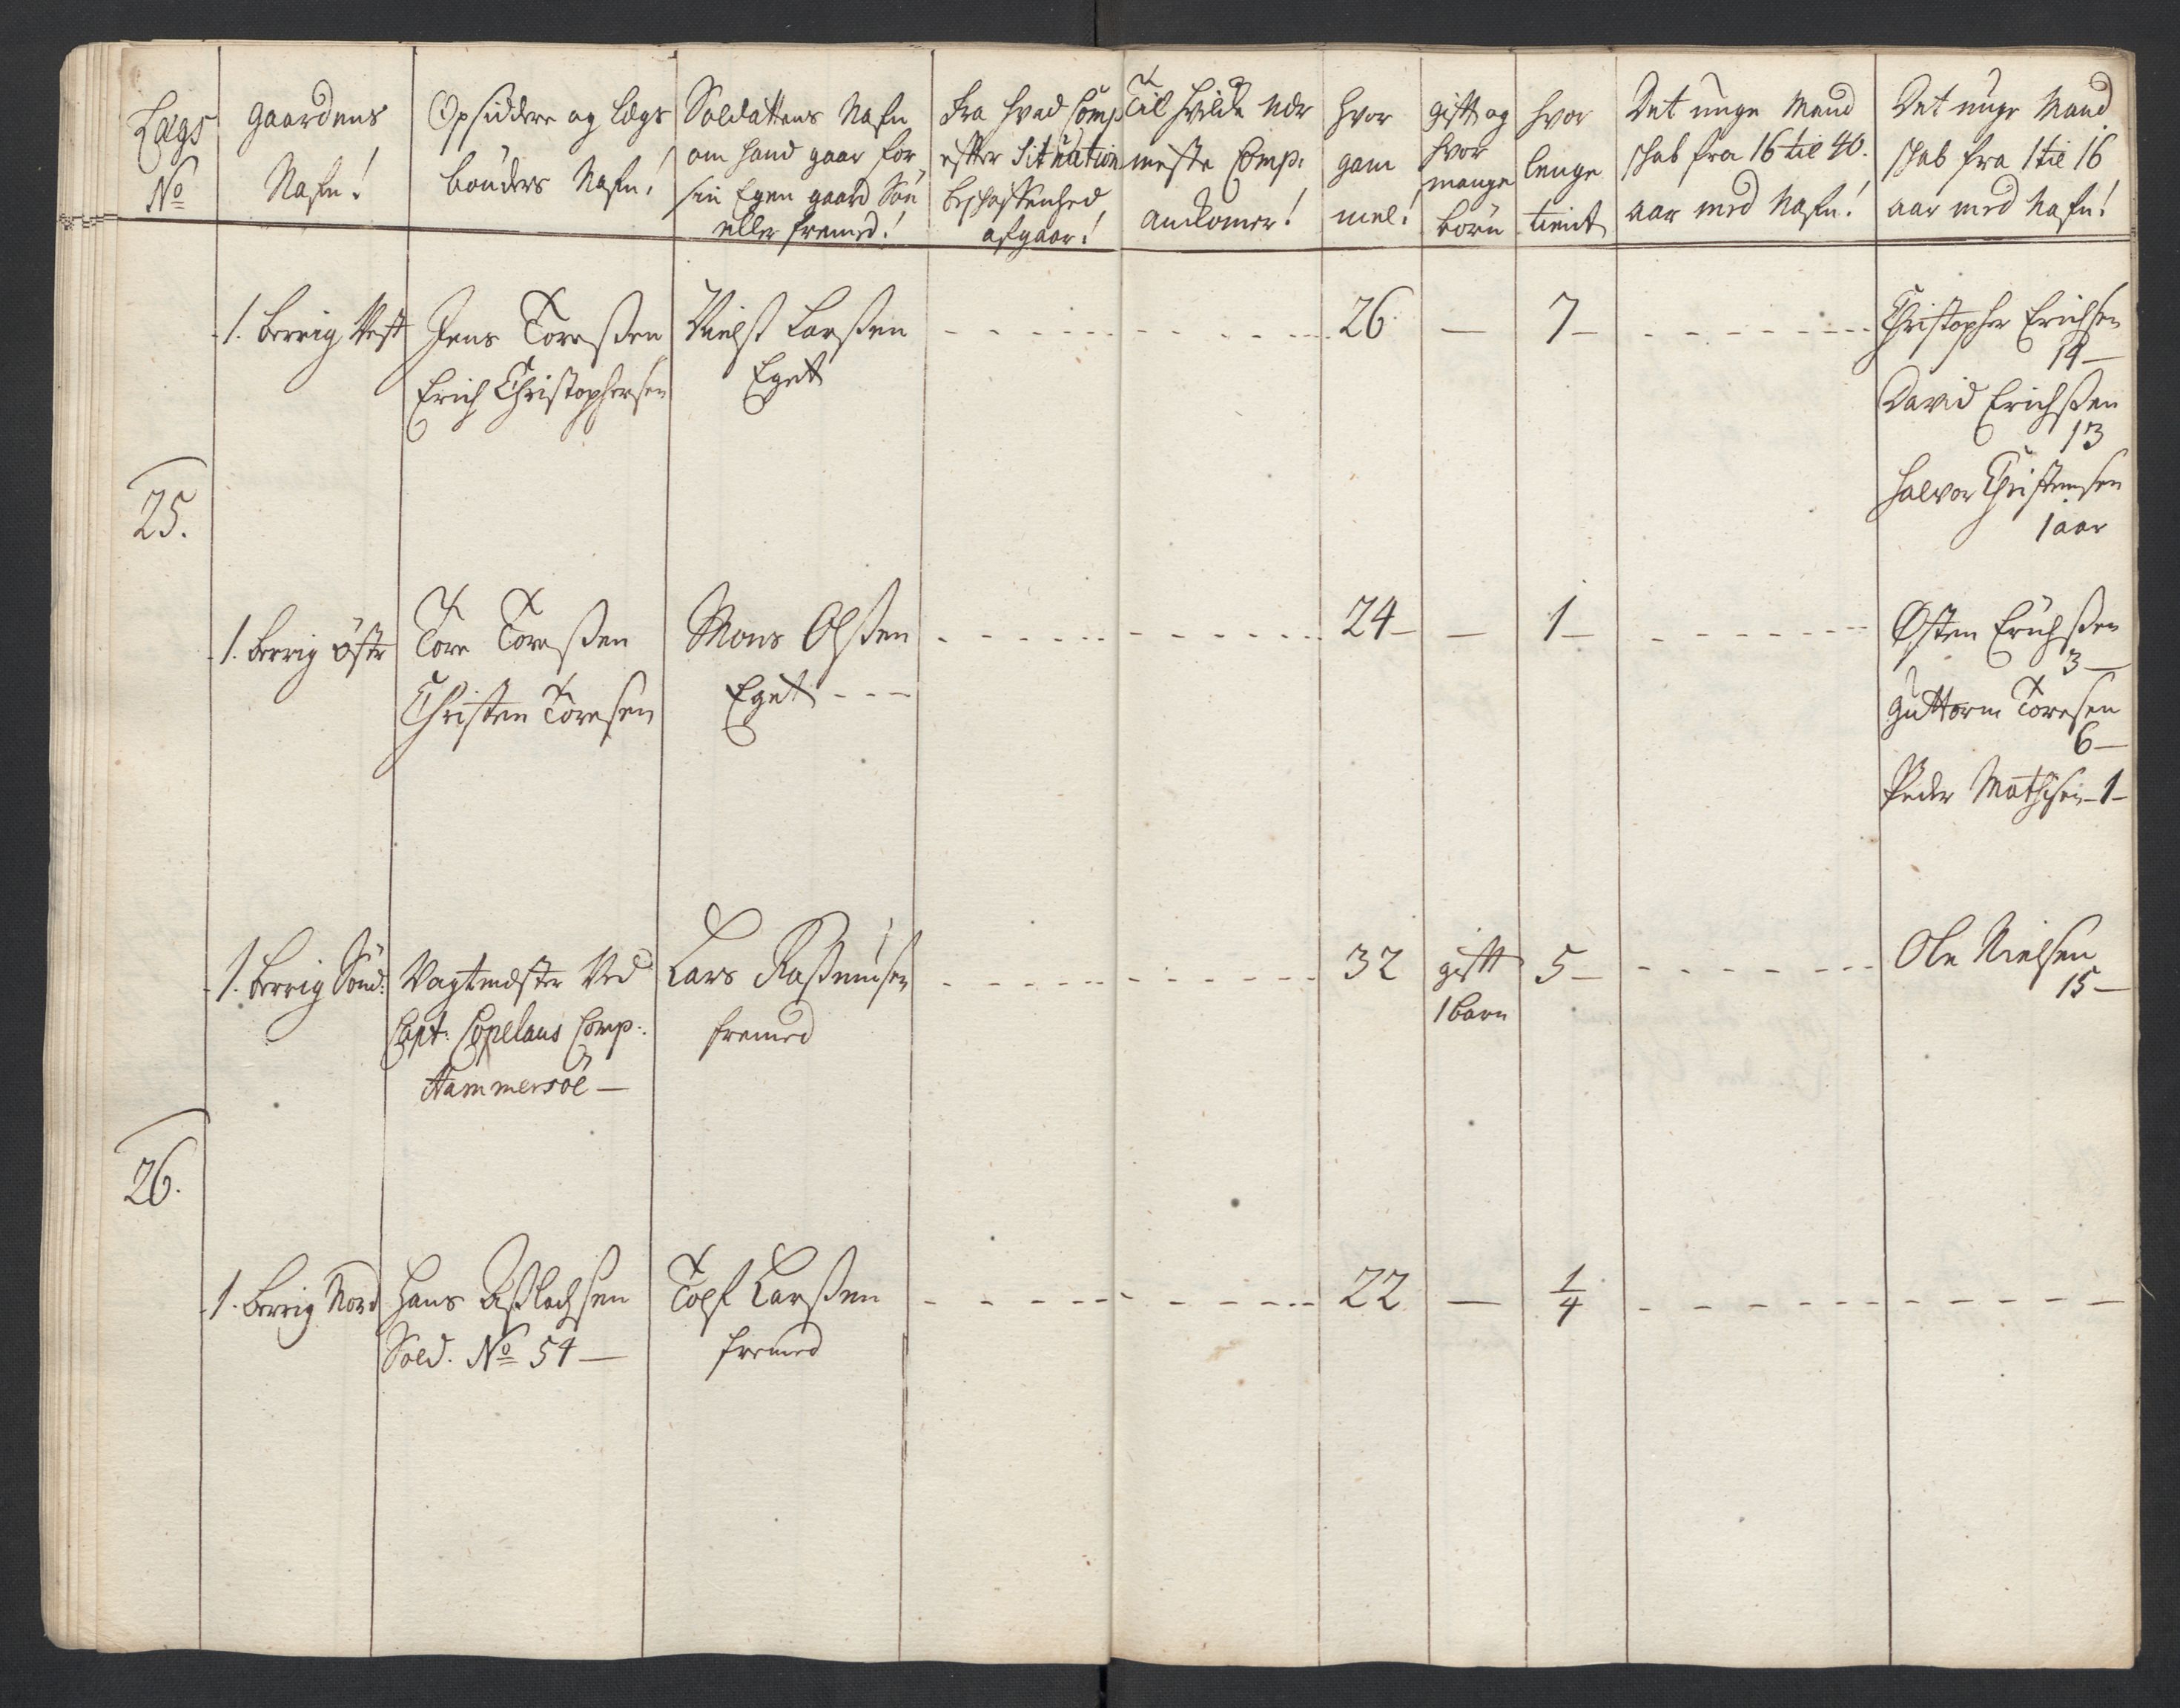 Lægs
No
gaardens
Nafn!
Opsiddere og Lægs
bønders Nafn!
Soldattens Nafn
om hand gaar for
sin Egen gaard Søn
eller fremd!
Fra hvad Comp
efter Situation
beschaffenhed
afgaar!
Til hvilcke Nær
meste Comp:
ankomer!
hvor
gam
mel!
gift og
hvor
mange
børn
hvor
lenge
tient
Det unge Mand
schab fra 16 til 40.
aar med Nafn!
Det unge Mand
schab fra 1 til 16
aar med Nafn!
25.
1. Berrig Vest
Jens Toreßen
Erich Christophersen
Nielß Larßen
Eget
26
—
7—
Christopher Erichsen
14—
David Erichßen
13
Halvor Christensen
1 aar
1. Berrig Østr
Tore Toreßen
Christen Toresen
Mons Olßen
Eget
24—
—
1—
Østen Erichßen
3—
Guttorm Toresen
6—
Peder Mathisen—1—
26.
1. Berrig Sønd:
Vagtmester Ved
Capt: Copelaus Comp:
Hammersøe—
Lars Raßmusen
fremd
32
gift
1 barn
5—
Ole Nielsen
15—
1. Berrig Nord
Hans Aßlachsen
Sold. No 54—
Tolf Larßen
fremd
22
—
1/4